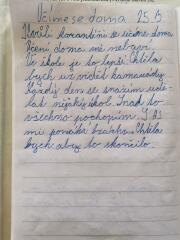 Učíme se doma 25.5.
Kvůli karanténě se učíme doma.
Učení doma mě nebaví.
Ve škole je to lepší. Chtěla
bych už vidět kamarády.
Každý den se snažím udě-
lat nějaký úkol. Snad to
všechno pochopím. I
mi pomáhá Chtěla
bych aby to skončilo.